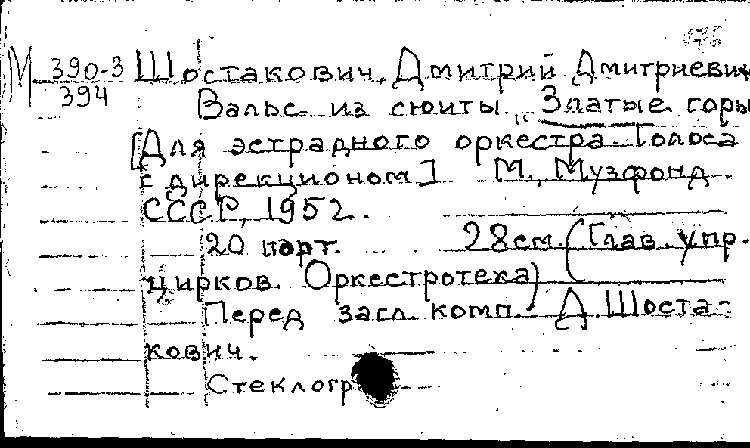 М 390-3 Шостакович, Дмитрий Дмитриевич
394 Вальс из сюиты „Златые горы
[Для эстрадного оркестра. Голоса
с дирекционом] М., Музфонд
СССР, 1952.
20 парт. 28см. (Глав. упр.
цирков. Оркестротека)
Перед загл. комп.: Д Шоста-
кович.
Стеклогр